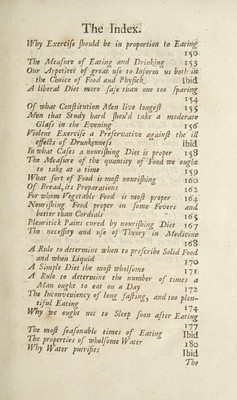 The Index.
Why Exercise should be in proportion to Eating
150
The Measure of Eating and Drinking 153
Our Appetites of great use to Inform us both in
the Choice of Food and Physick Ibid
A liberal Diet more safe than one too sparing
154
Of what Constitution Men live longest 155
Men that Study hard shou'd take a moderate
Glass in the Evening 156
Violent Exercise a Preservative against the ill
effects of Drunkenness ibid
In what Cases a nourishing Diet is proper 158
The Measure of the quantity of Food we ought
to take at a time 159
What sort of Food is most nourishing 160
Of Bread, its Preparations 162
For whom Vegetable Food is most proper 164
Nourishing Food proper in some Fevers and
better than Cordials 165
Pleuritick Pains cured by nourishing Diet 167
The necessity and use of Theory in Medicine
168
A Rule to determine when to prescribe Solid Food
and when Liquid 170
A Simple Diet the most wholsome 171
A Rule to determine the number of times a
Man ought to eat on a Day 172
The Inconveniency of long fasting, and too plen-
tiful Eating 174
Why we ought not to Sleep soon after Eating
177
The most seasonable times of Eating Ibid
The properties of wholsome Water 180
Why Water putrifies Ibid
The